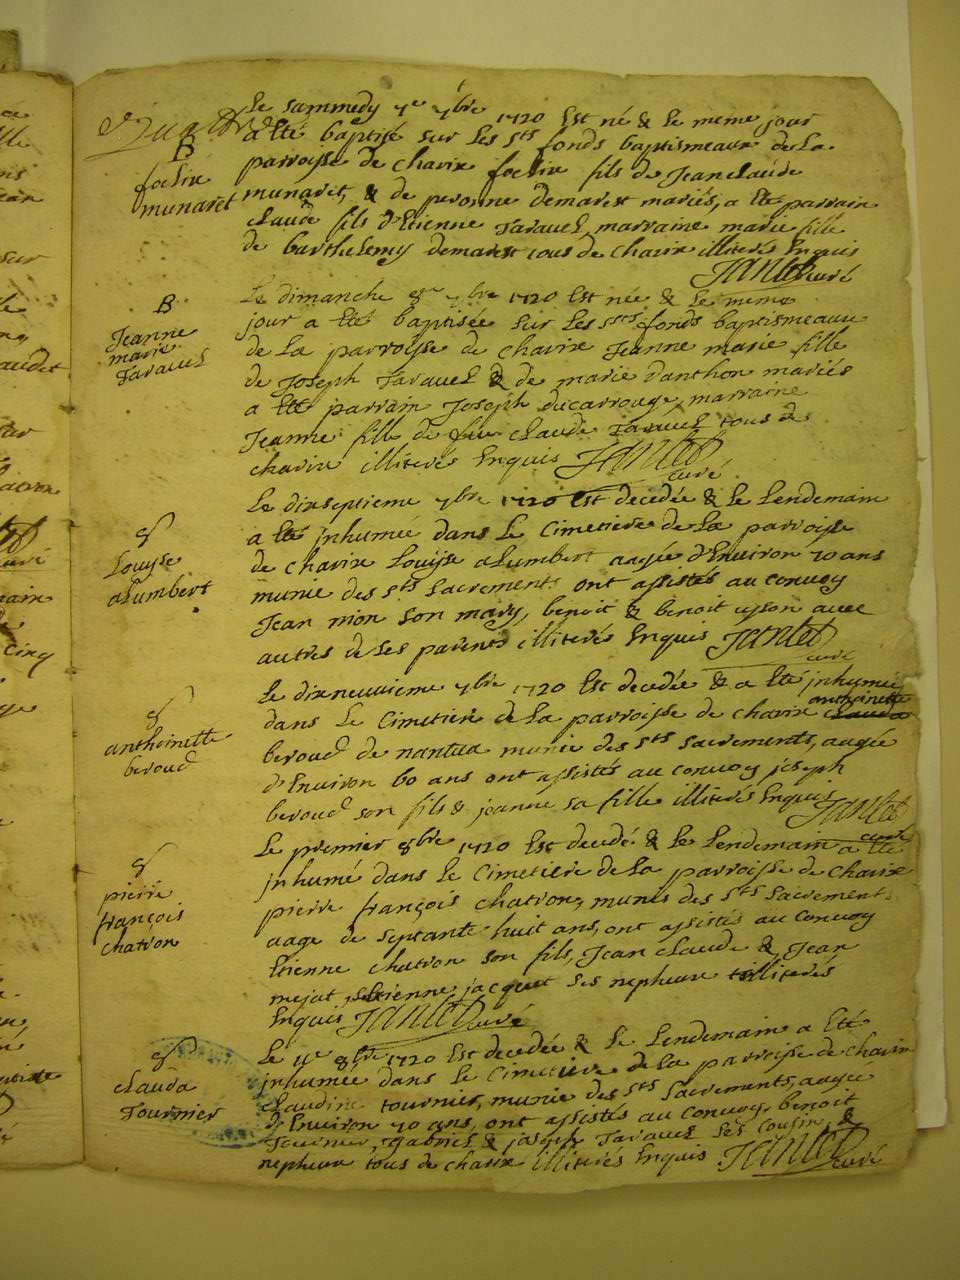 Le sammedy 7e 7bre 1720 Est né & le meme jour
a Eté baptisé sur les sts fonds baptismeaux de La
B
foelix
munaret
parroisse de chavix foelix fils de Jean claude
munaret, & de peronne demarest mariés, a Eté parrain
claude fils d'Etienne Taravel, marraine marie fille
de barthelemy demarest tous de chavix illiterés Enquis
Janlet curé
B
Jeanne
marie
Taravel
Le dimanche 8e 7bre 1720 Est née & Le meme
jour a Eté baptisée sur Les sts fonds baptismeaux
de La parroisse de chavix Jeanne marie fille
de Joseph Taravel & de marie danthon mariés
a Eté parrain Joseph ducarrouge, marraine
Jeanne fille de feu claude Taravel tous de
chavix illiterés Enquis Janlet
curé
Louyse
alumbert
Le dixseptieme 7bre 1720 Est decedée & Le Lendemain
a Eté jnhumée dans Le Cimetiere de La parroisse
de chavix Louyse alumbert aagée d'Environ 70 ans
munie des sts sacrements ont assistés au convoy
Jean mion son mary, benoit & benoit uyson avec
autres de ses parents illiterés Enquis Janlet
curé
anthoinette
beroud
Le dixneuvieme 7bre 1720 Est decedée & a Eté jnhumée
dans Le Cimetiere de La parroisse de chavix anthoinette
beroud de nantua munie des sts sacrements, aagée
d'Environ 60 ans ont assistés au convoy joseph
beroud son fils & jeanne sa fille illiterés Enquis Janlet
curé
pierre
françois
chatron
Le premier 8bre 1720 Est decedé & Le Lendemain a Eté
jnhumé dans Le Cimetiere de La parroisse de chavix
pierre françois chatron, munis des sts sacrements
aage de septante huit ans, ont assistés au convoy
Etienne chatron son fils, Jean claude & Jean
mejat, Etienne jacquet ses nepheux illiterés
Enquis Janlet curé
clauda
Tournier
Le 11e 8bre 1720 Est decedée & Le Lendemain a Eté
jnhumée dans Le Cimetiere de La parroisse de chavix
claudine tournier, munie des sts sacrements, aagée
d'Environ 70 ans, ont assistés au convoy, benoit
Tournier, gabriel & joseph Taravel ses cousin, &
nepheux tous de chavix illiterés Enquis Janlet
curé